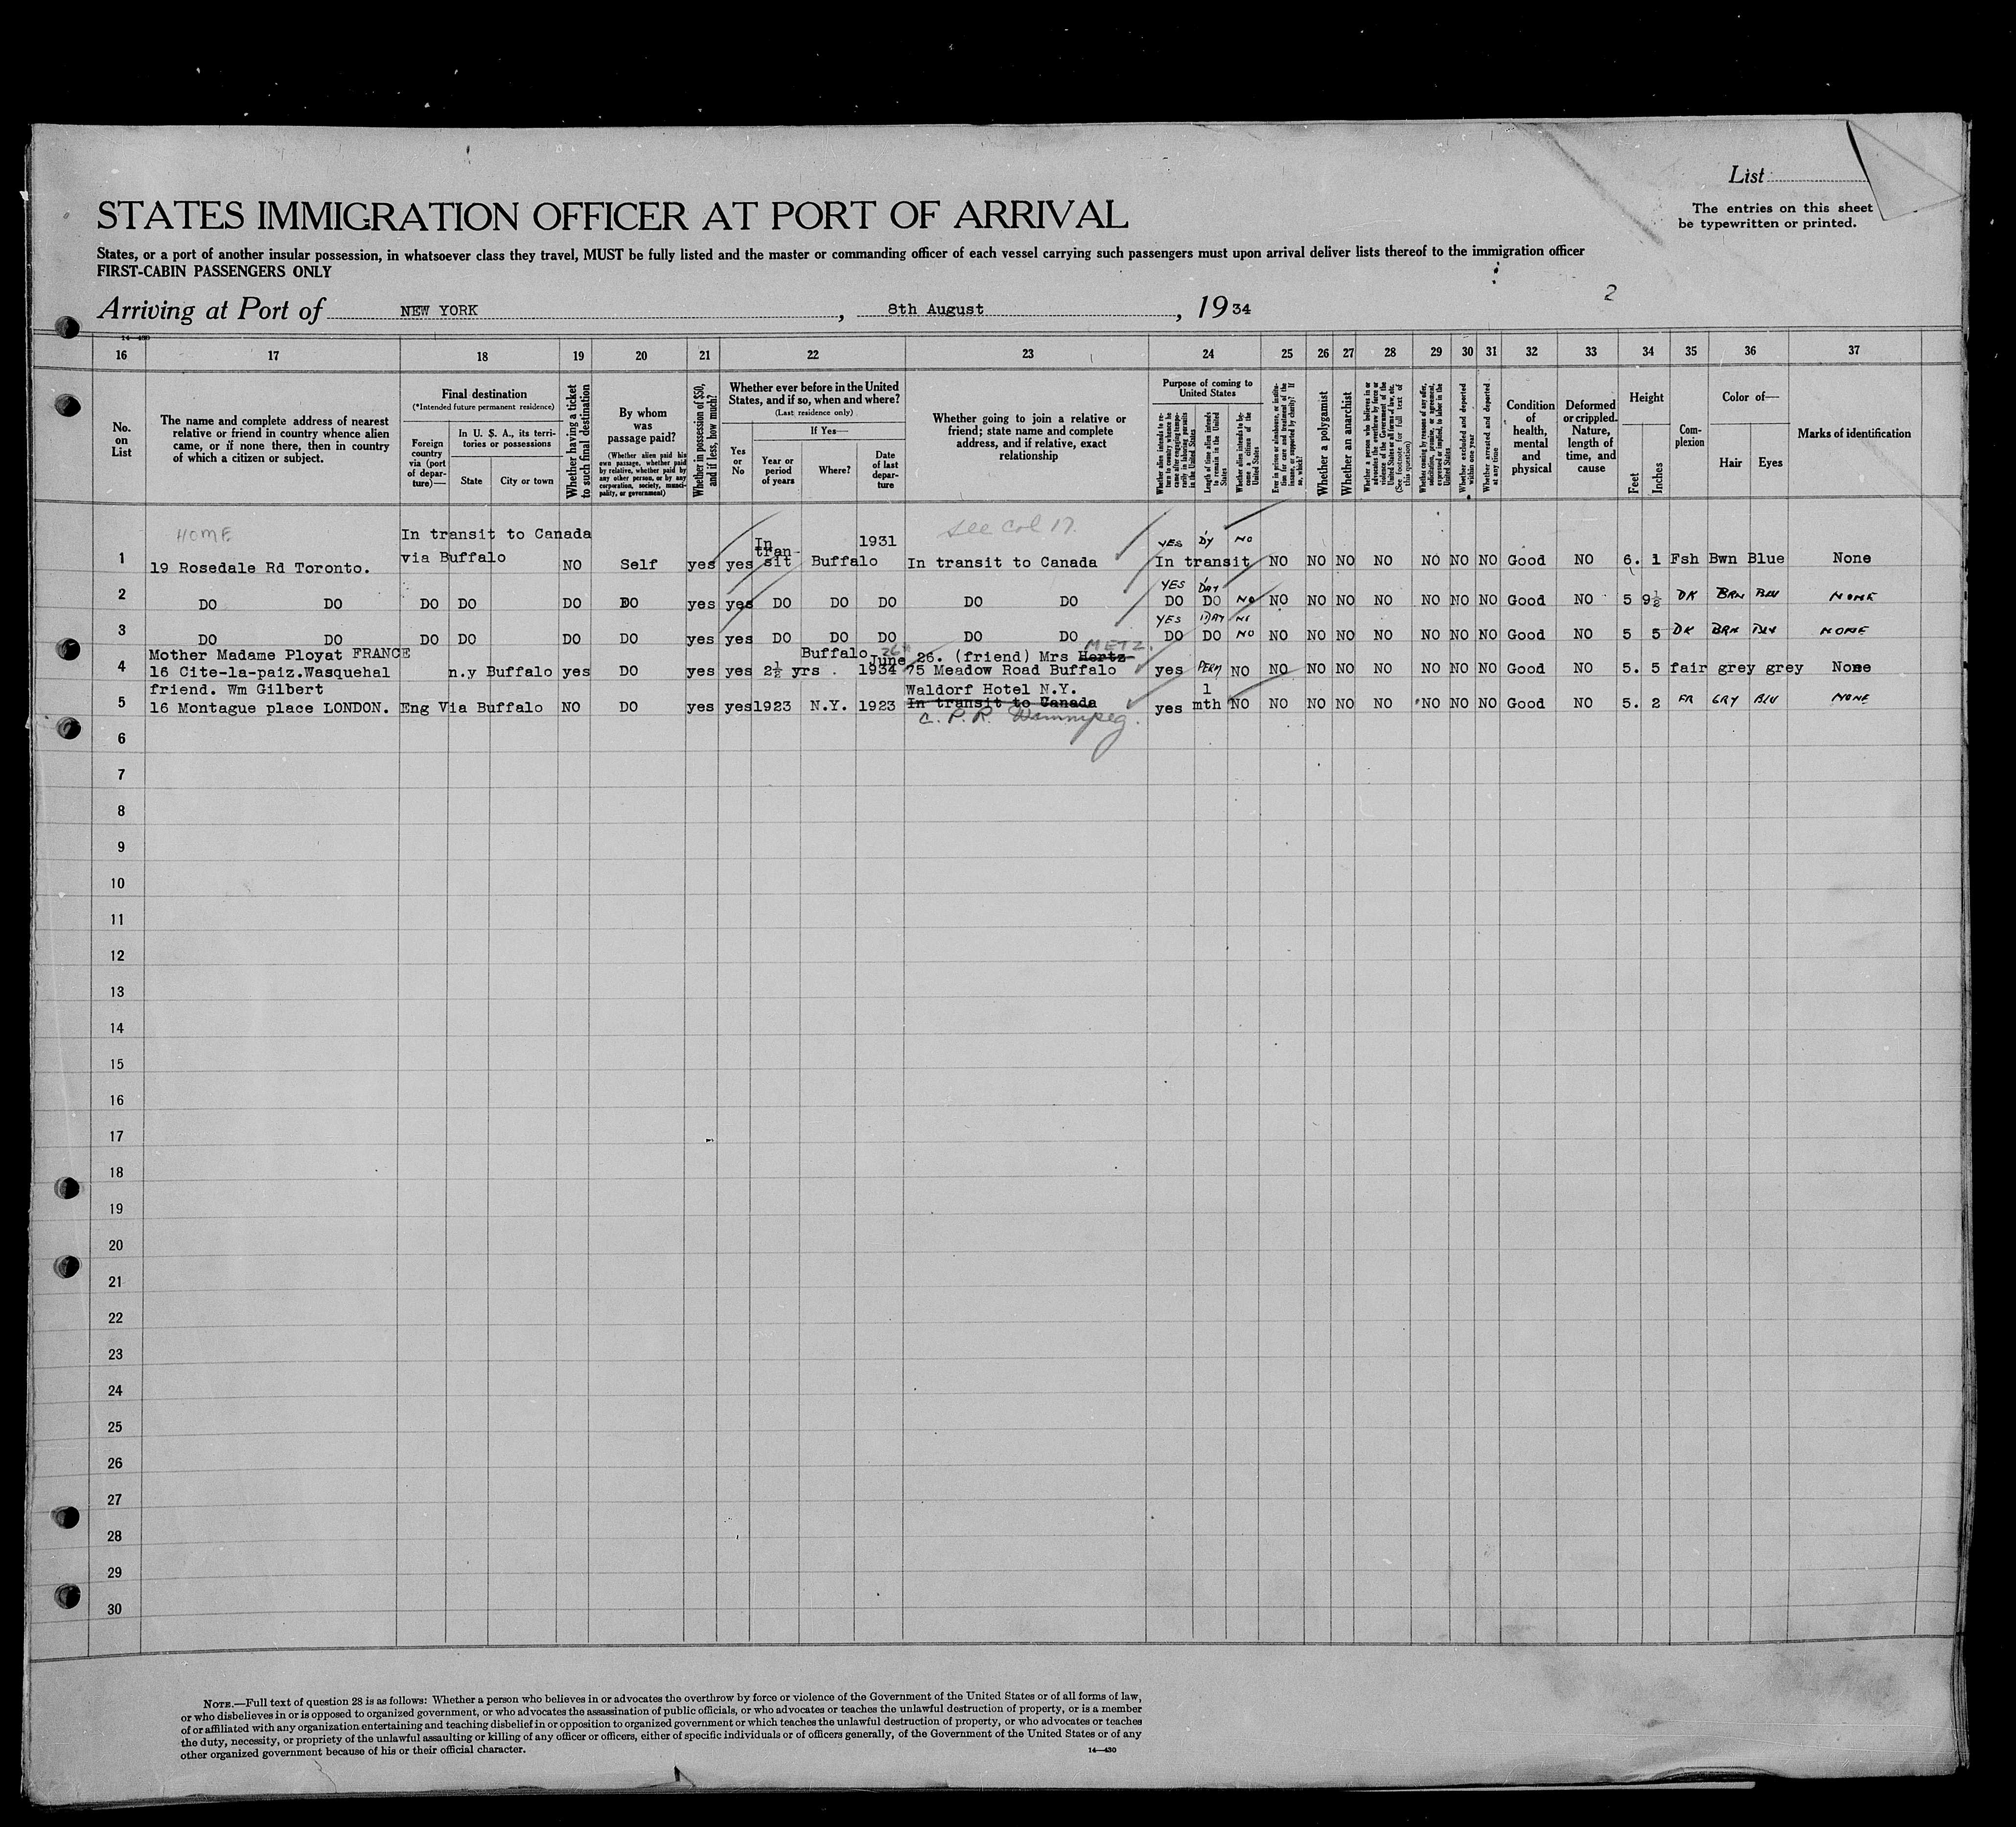 List
The entries on this sheet
be typewritten or printed.
STATES IMMIGRATION OFFICER AT PORT OF ARRIVAL
States, or a port of another insular possession, in whatsoever class they travel, MUST be fully listed and the master or commanding officer of each vessel carrying such passengers must upon arrival deliver lists thereof to the immigration officer
FIRST-CABIN PASSENGERS ONLY
2
Arriving at Port of NEW YORK, 8th August, 1934
14—430
16 17 18 19 20 21 22 23 24 25 26 27 28 29 30 31 32 33 34 35 36 37
No. on List
The name and complete address of nearest relative or friend in country whence alien came, or if none there, then in country of which a citizen or subject.
Final destination
(*Intended future permanent residence)
Foreign country via (port of departure)—
In U. S. A., its territories or possessions
State
City or town
Whether having a ticket to such final destination
By whom was passage paid?
(Whether alien paid his own passage, whether paid by relative, whether paid by any other person, or by any corporation, society, municipality, or government)
Whether in possession of $50, and if less, how much?
Whether ever before in the United States, and if so, when and where?
(Last residence only)
Yes or No
If Yes—
Year or period of years
Where?
Date of last departure
Whether going to join a relative or friend; state name and complete address, and if relative, exact relationship
Purpose of coming to United States
Whether alien intends to return to country whence he came after engaging temporarily in laboring pursuits in the United States
Length of time alien intends to remain in the United States
Whether alien intends to become a citizen of the United States
Ever in prison or almshouse, or institution for care and treatment of the insane, or supported by charity? If so, which?
Whether a polygamist
Whether an anarchist
Whether a person who believes in or advocates the overthrow by force or violence of the Government of the United States or all forms of law, etc. (See footnote for full text of this question)
Whether coming by reasons of any offer, solicitation, promise, or agreement, expressed or implied, to labor in the United States
Whether excluded and deported within one year
Whether arrested and deported at any time
Condition of health, mental and physical
Deformed or crippled. Nature, length of time, and cause
Height
Feet
Inches
Complexion
Color of—
Hair
Eyes
Marks of identification
HOME In transit to Canada In tran- 1931 see Col 17. YES DY NO
1 19 Rosedale Rd Toronto. via Buffalo NO Self yes yes sit Buffalo In transit to Canada In transit NO NO NO NO NO NO NO Good NO 6. 1 Fsh Bwn Blue None
YES DAY
2 DO DO DO DO DO DO yes yes DO DO DO DO DO DO DO NO NO NO NO NO NO NO NO Good NO 5 9½ DK BRN BLU NONE
YES DAY NO
3 DO DO DO DO DO DO yes yes DO DO DO DO DO DO DO NO NO NO NO NO NO NO NO Good NO 5 5 DK BRN BLU NONE
Mother Madame Ployat FRANCE Buffalo 26th June 26. (friend) Mrs Hertz METZ.
4 16 Cite-la-paiz.Wasquehal n.y Buffalo yes DO yes yes 2½ yrs . 1934 75 Meadow Road Buffalo yes PERM NO NO NO NO NO NO NO NO Good NO 5. 5 fair grey grey None
friend. Wm Gilbert Waldorf Hotel N.Y. 1
5 16 Montague place LONDON. Eng Via Buffalo NO DO yes yes 1923 N.Y. 1923 In transit to Canada yes mth NO NO NO NO NO NO NO NO Good NO 5. 2 FR GRY BLU NONE
C. P. R. Winnipeg.
6
7
8
9
10
11
12
13
14
15
16
17
18
19
20
21
22
23
24
25
26
27
28
29
30
NOTE.—Full text of question 28 is as follows: Whether a person who believes in or advocates the overthrow by force or violence of the Government of the United States or of all forms of law,
or who disbelieves in or is opposed to organized government, or who advocates the assassination of public officials, or who advocates or teaches the unlawful destruction of property, or is a member
of or affiliated with any organization entertaining and teaching disbelief in or opposition to organized government or which teaches the unlawful destruction of property, or who advocates or teaches
the duty, necessity, or propriety of the unlawful assaulting or killing of any officer or officers, either of specific individuals or of officers generally, of the Government of the United States or of any
other organized government because of his or their official character.
14—430